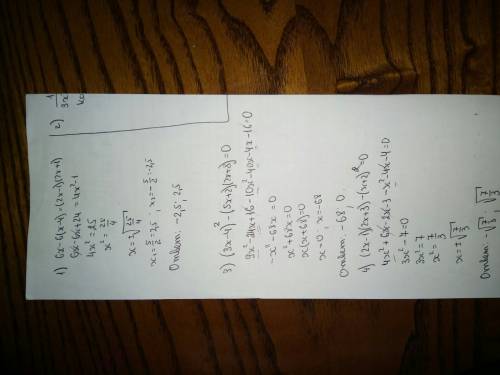 1) 6x-6(x-4)=(2x-1)(2x+1)
6x-6x+24=4x²-1
4x²=25
x²=25/4
x=±√25/4
x₁=5/2=2,5; x₂=-5/2=-2,5
Ответ: -2,5; 2,5
3) (3x-4)²-(5x+2)(2x+8)=0
9x²-24x+16-10x²-40x-4x-16=0
-x²-68x=0
x²+68x=0
x(x+68)=0
x=0; x=-68
Ответ: -68; 0.
4) (2x-1)(2x+3)-(x+2)²=0
4x²+6x-2x-3-x²-4x-4=0
3x²-7=0
3x²=7
x²=7/3
x=±√7/3
Ответ: -√7/3; √7/3
2)